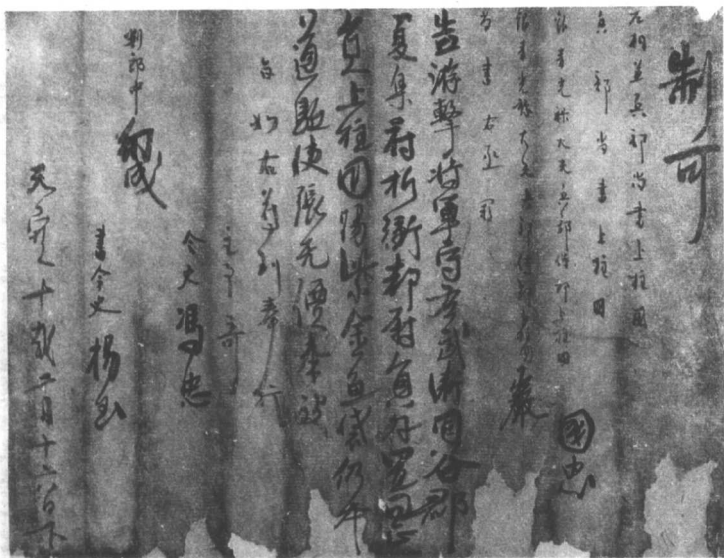 制可
右相兼兵部尚書上柱國
部尚書上柱國
國忠
銀青光祿大夫兵部侍郎上柱國
銀青光祿大夫兵部侍郎
巖
尚書右丞
告游擊將軍守左武衛同谷郡
夏集府折衝都尉員外置同正
員上柱國賜紫金魚袋仍本
道驅使張无價奉被
旨如右符到奉行
主事奇
判郎中
令史馮忠
書令史楊玉
天寶十載二月十二日下